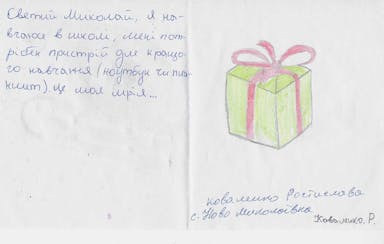 Светий Миколай, я на-
вчаюся в школі, мені пот-
рібен пристрій для кращо-
го навчання (ноутбук чи план-
ншет). Це моя мрія...
Коваленко Ростислава
с. Ново Миколаївка
Коваленко. Р.